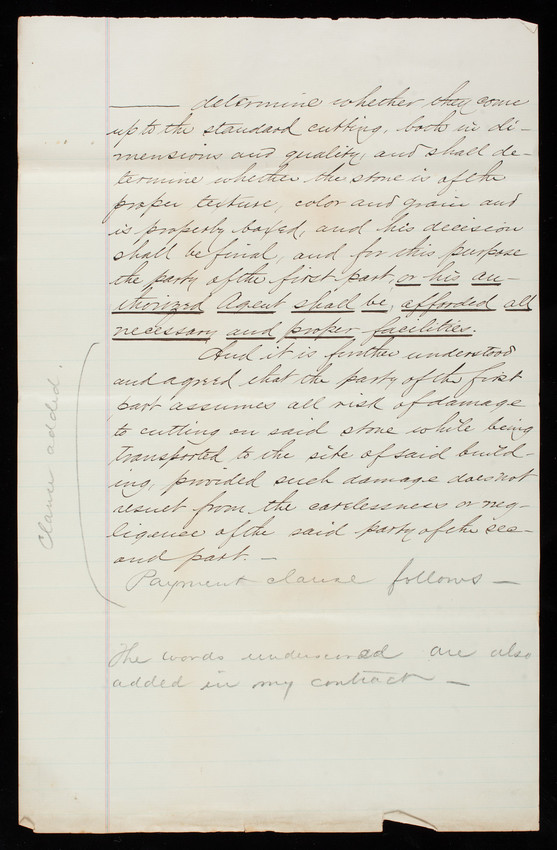 determine whether they come
up to the standard cutting, both in di-
mensions and quality, and shall de-
termine whether the stone is of the
proper texture, color and grain and
is properly boxed, and his decision
shall be final, and for this purpose
the party of the first part, or his au-
thorized Agent shall be, afforded all
necessary and proper facilities.
And it is further understood
and agreed that the party of the first
part assumes all risk of damage
to cutting on said stone while being
transported to the site of said build-
ing, provided such damage does not
result from the carelessness or neg-
ligence of the said party of the sec-
ond part. —
Payment clause follows —
The words underscored are also
added in my contract —
Clause added.